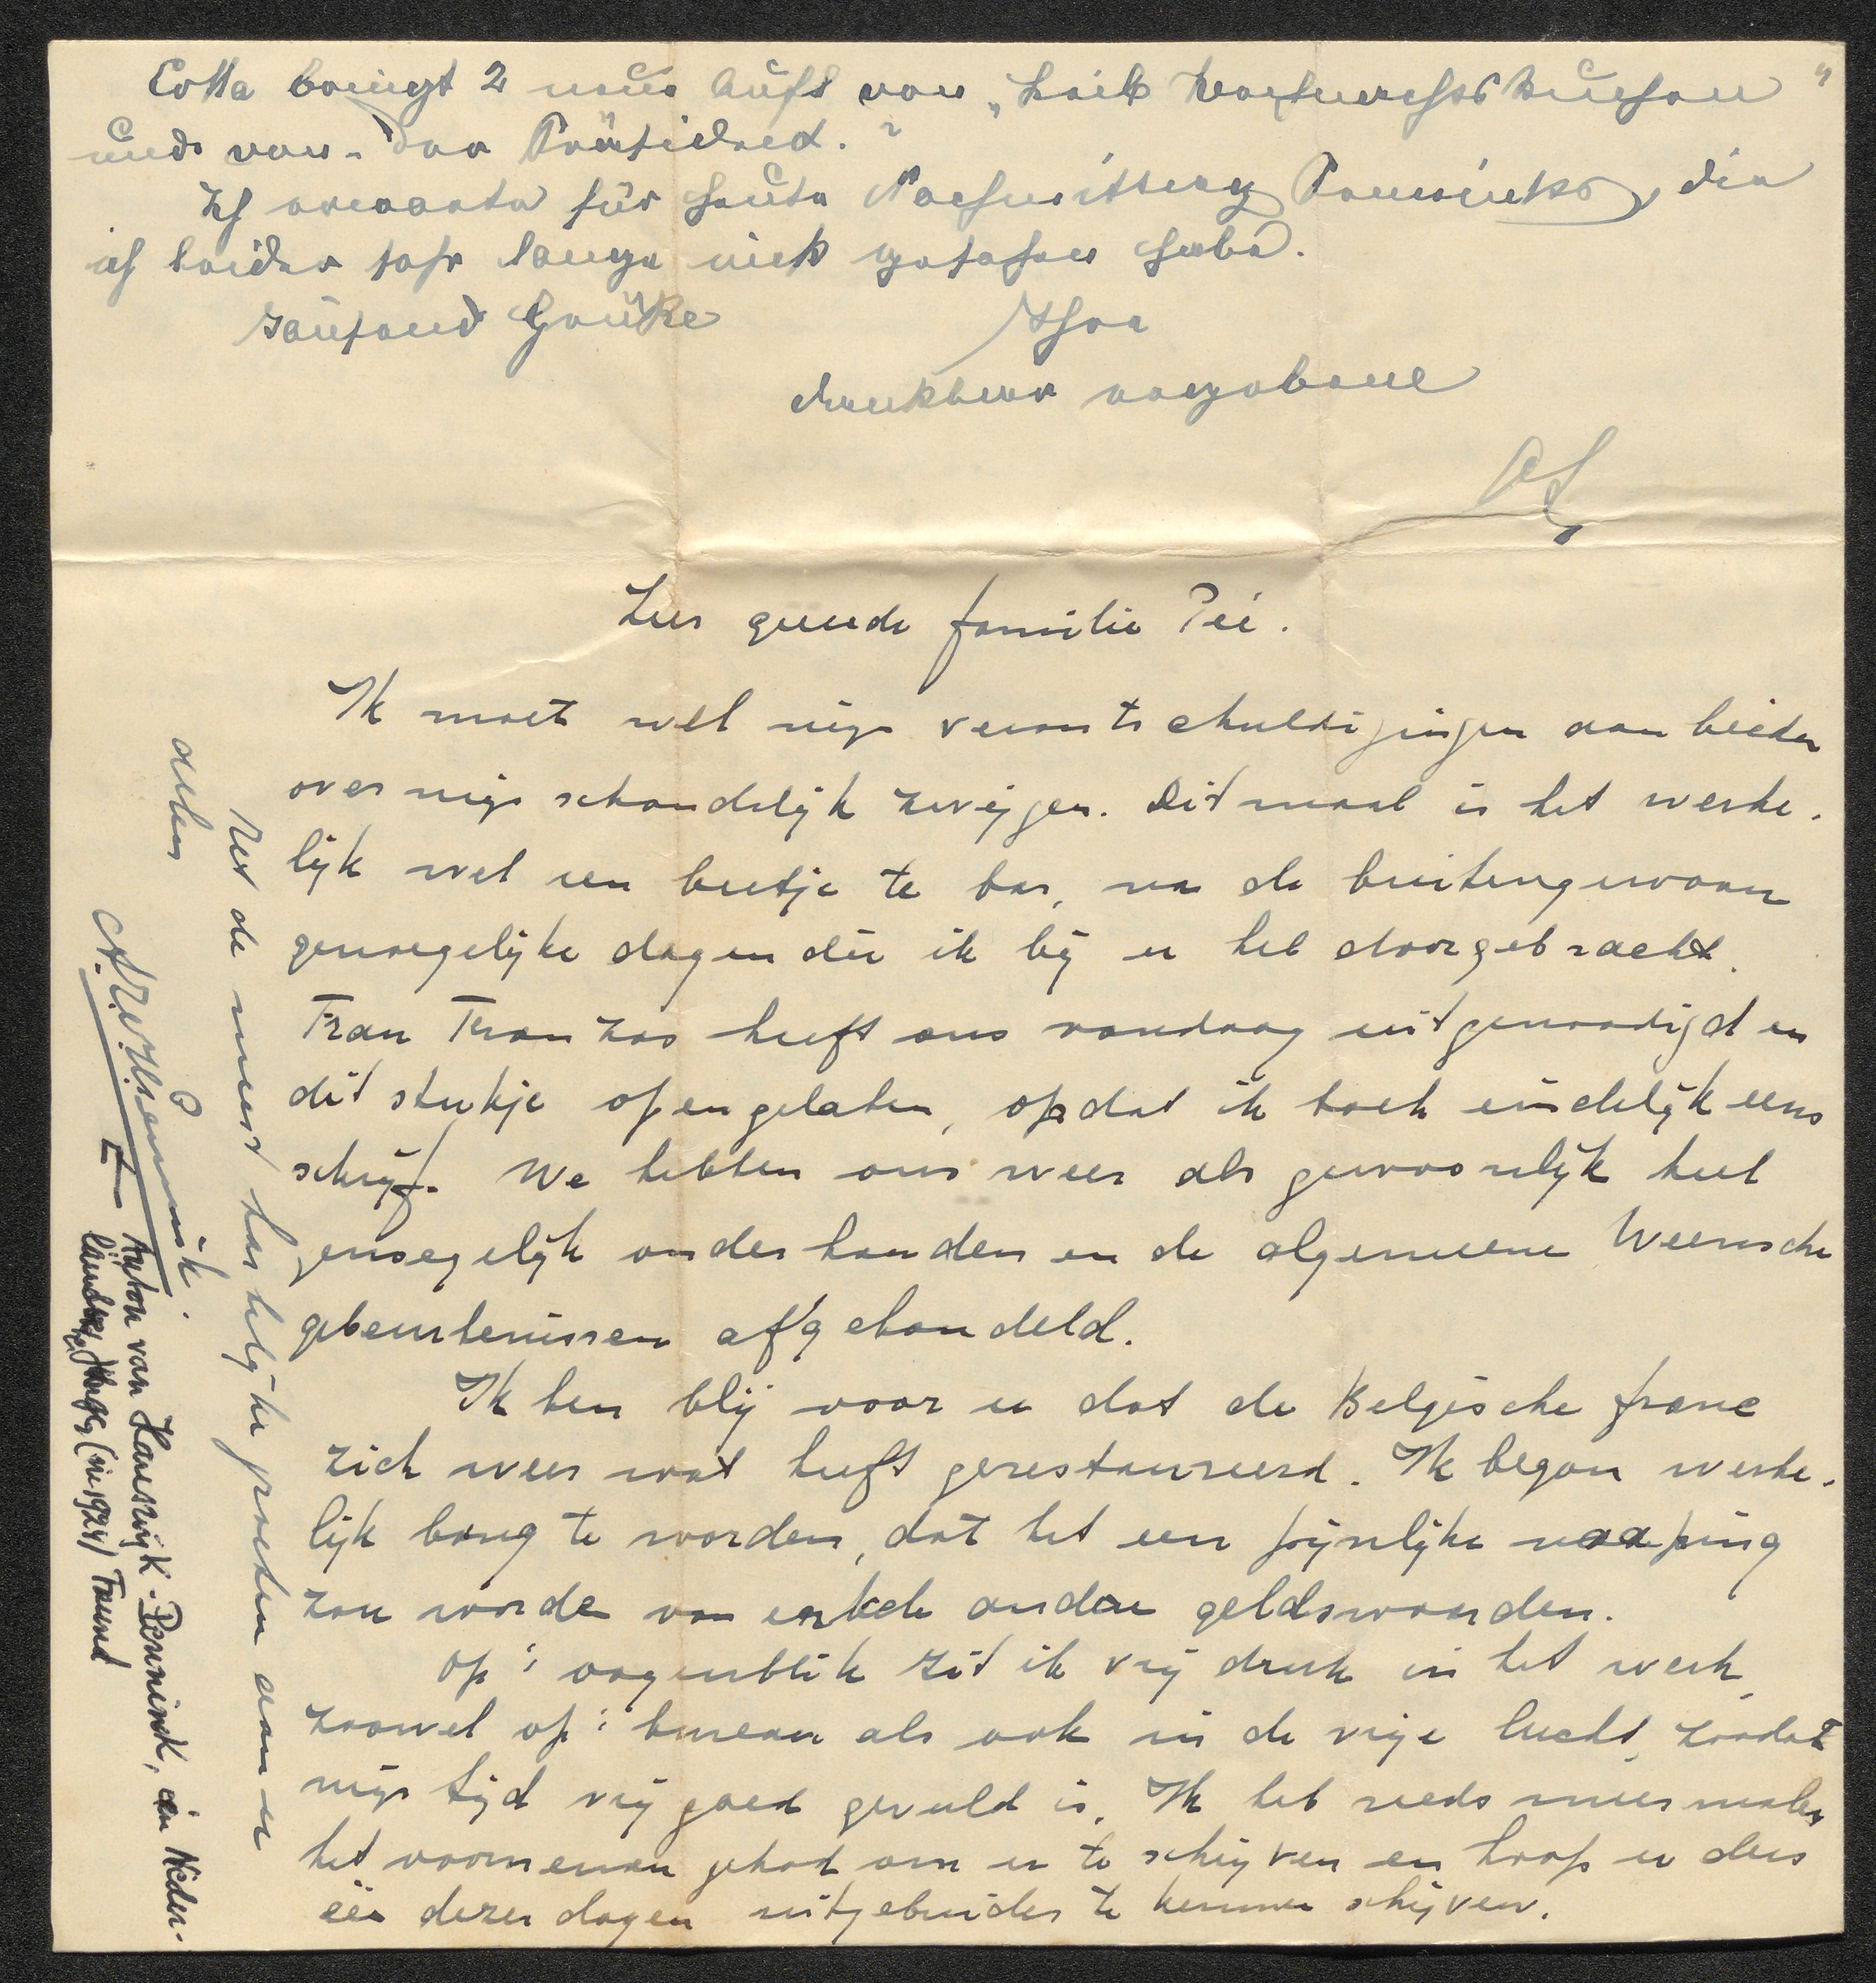 Cotta bringt 2 neue Aufl von „Leib Weihnachtskuchen"
und von „Der Präsident."
Ich erwarte für heute Nachmittag Penninks, die
ich leider sehr lange nicht gesehen habe.
Tausend Grüße Ihre
dankbar ergebene
Zeer geeerde familie Peé.
Ik moet wel mijn verontschuldigingen aanbieden
over mijn schandelijk zwijgen. Ditmaal is het werke-
lijk wel een beetje te bar, na de buitengewoon
genoegelijke dagen die ik bij u heb doorgebracht.
Frau Franzos heeft ons vandaag uitgenoodigd en
dit stukje opengelaten, opdat ik toch eindelijk eens
schrijf. We hebben ons weer als gewoonlijk heel
genoegelijk onderhouden en de algemeene Weensche
gebeurtenissen afgehandeld.
Ik ben blij voor u dat de Belgische franc
zich weer wat heeft gerestaureerd. Ik begon werke-
lijk bang te worden, dat het een pijnlijke naäping
zou worde van enkele andere geldswaarden.
Op 't oogenblik zit ik vrij druk in het werk,
zoowel op 't bureau als ook in de vrije lucht, zoodat
mijn tijd vrij goed gevuld is. Ik heb reeds meermalen
het voornemen gehad om u te schrijven en hoop u dus
één dezer dagen uitgebreider te kunnen schrijven.
Met de meest hartelijke groeten aan u
allen
A.v.H.Pennink.
Anton van Hanswijk-Pennink, ein Nieder-
länder, (in 1924) Freund